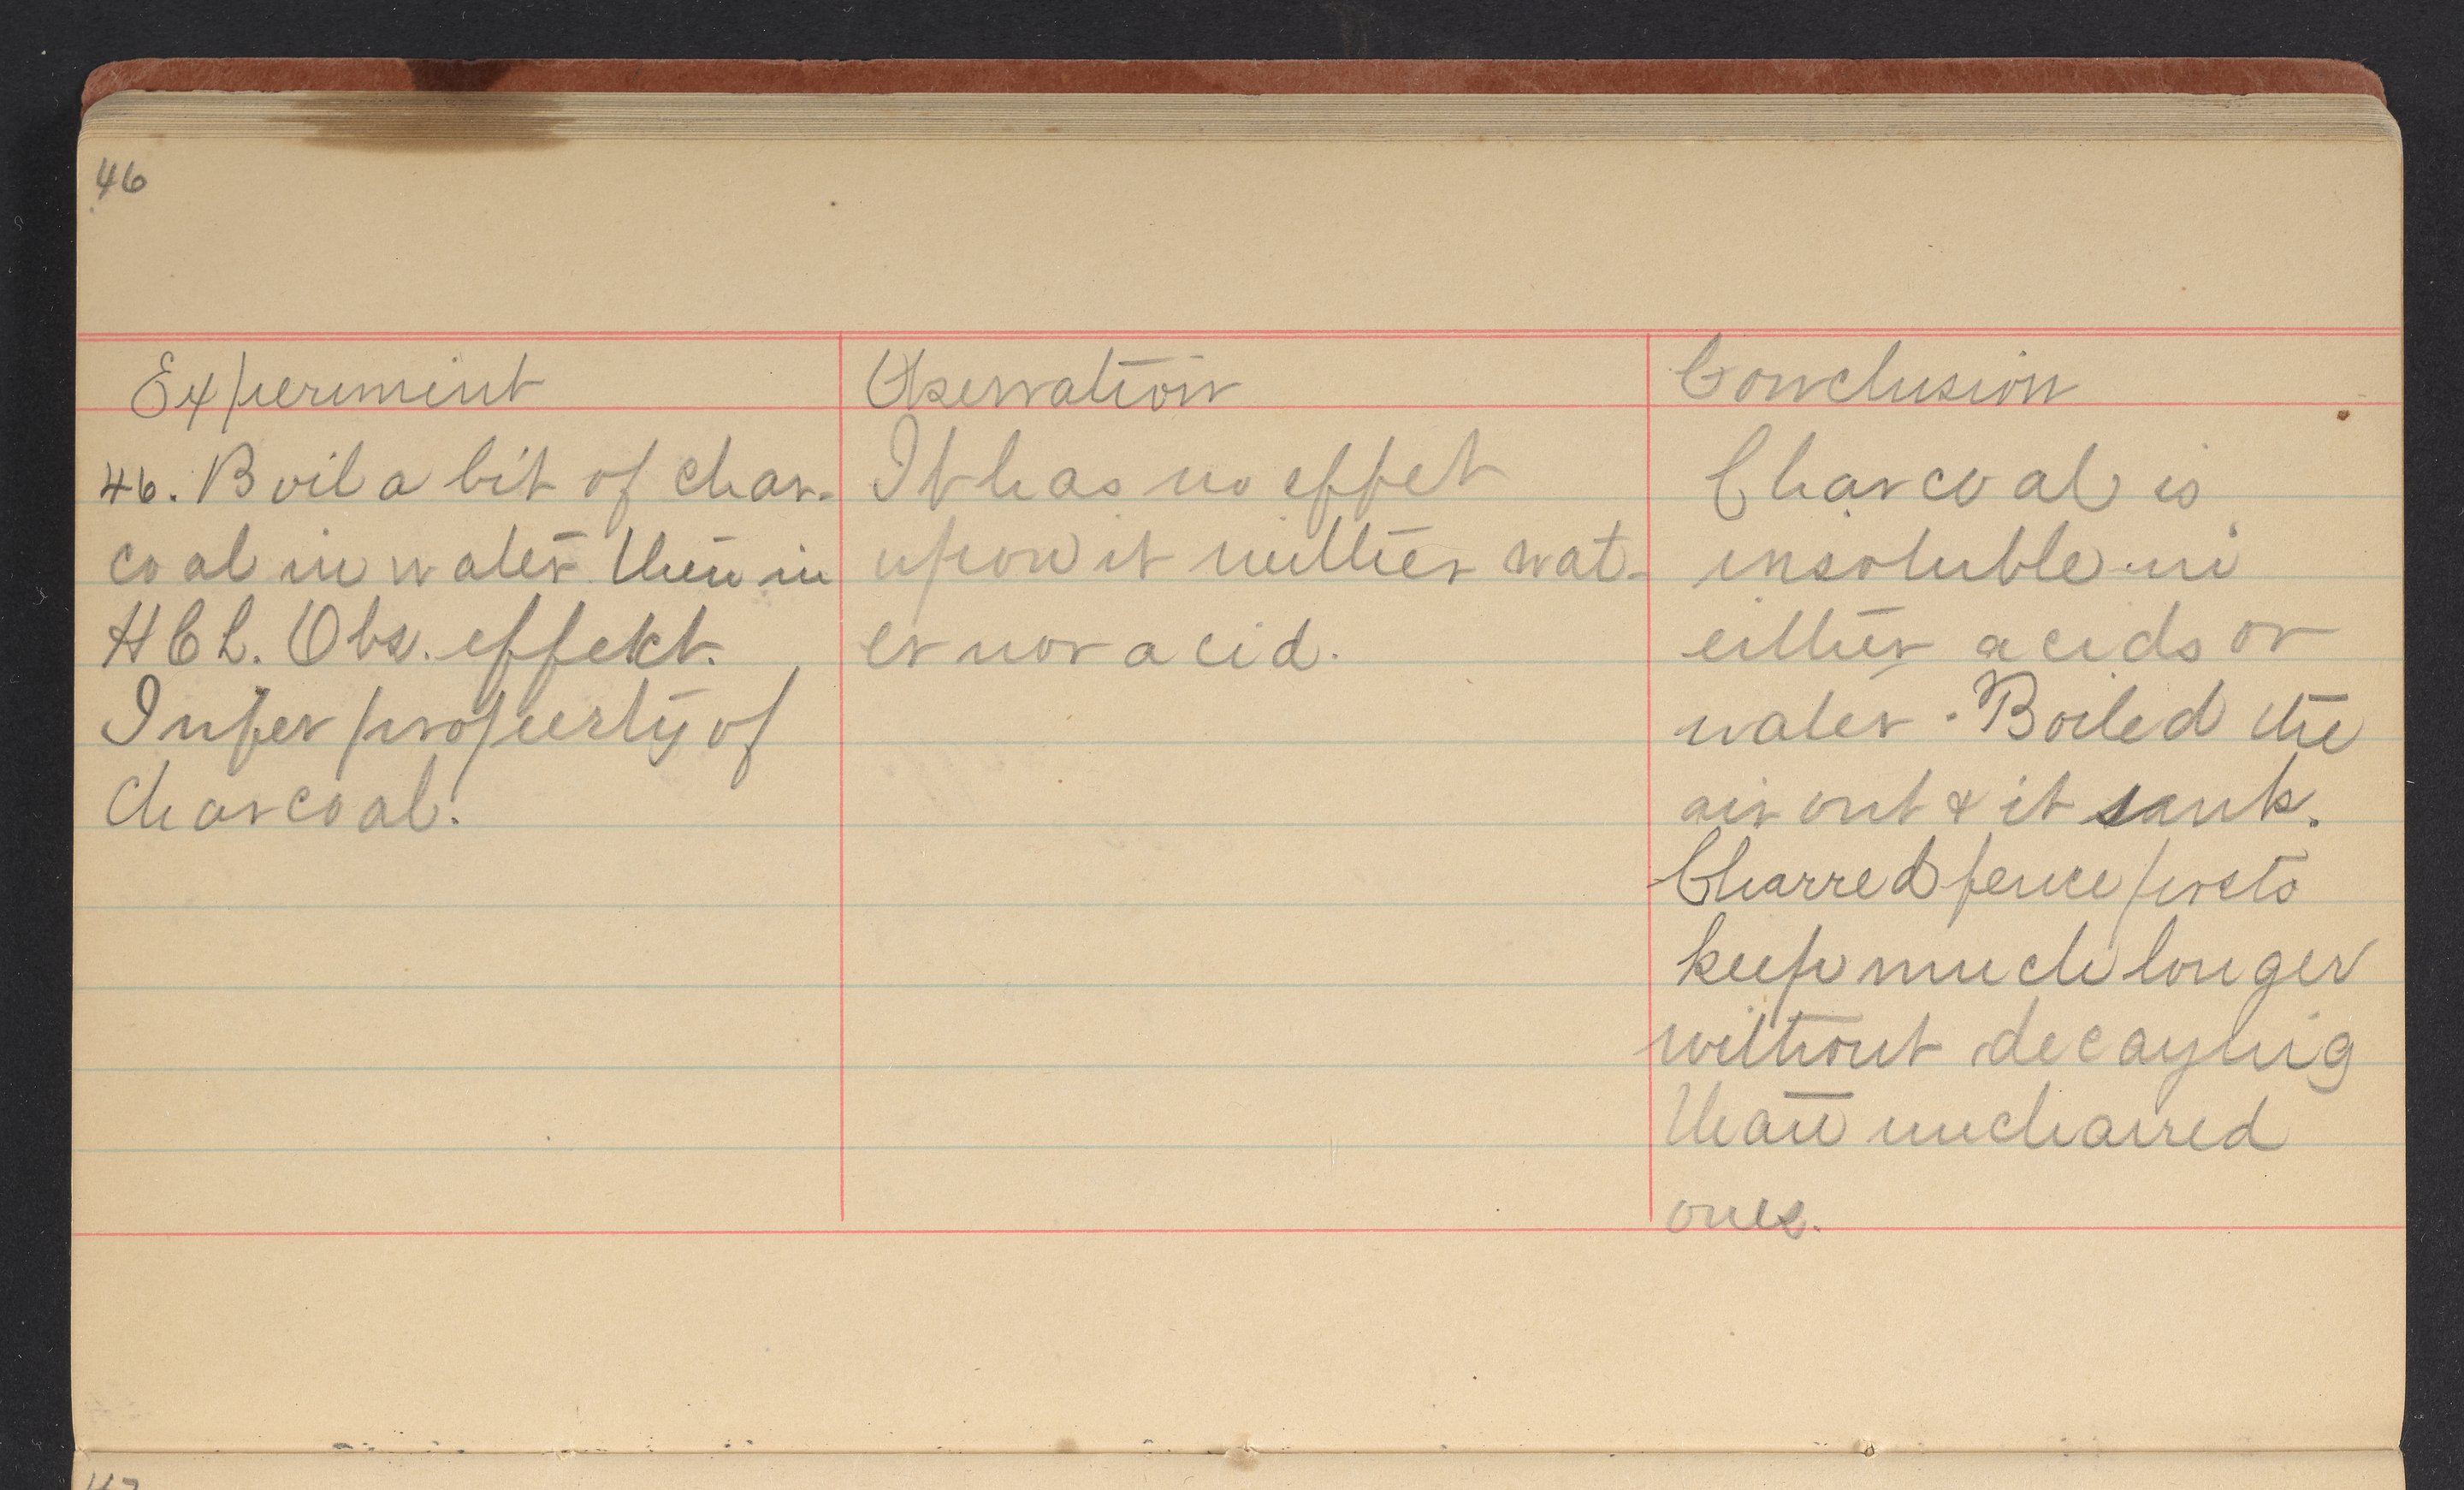 46
Experiment
46. Boil a bit of char-
coal in water then in
HCl. Obs. effekt.
Infer property of
Charcoal.
Observation
It has no effet
upon it neither wat-
er nor acid.
Conclusion
Charcoal is
insoluble in
either acids or
water. Boiled the
air out & it sank.
Charred fence posts
keep much longer
without decaying
than uncharred
ones.
47